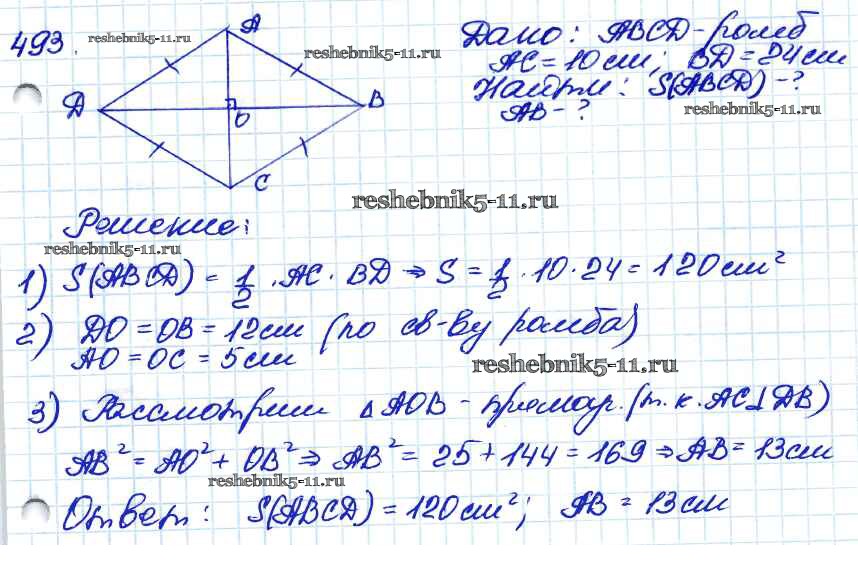 493.
reshebnik5-11.ru
A
Дано: ABCD - ромб
reshebnik5-11.ru
AC = 10 см; BD = 24 см
Найти: S(ABCD) - ?
D
B
O
AB - ?
reshebnik5-11.ru
C
reshebnik5-11.ru
Решение:
reshebnik5-11.ru
1) S(ABCD) = 1/2 · AC · BD ⇒ S = 1/2 · 10 · 24 = 120 см²
2) DO = OB = 12 см (по св-ву ромба)
AO = OC = 5 см
reshebnik5-11.ru
3) Рассмотрим △AOB - прямоуг. (т.к. AC⊥DB)
AB² = AO² + OB² ⇒ AB² = 25 + 144 = 169 ⇒ AB = 13 см
reshebnik5-11.ru
Ответ: S(ABCD) = 120 см²; AB = 13 см